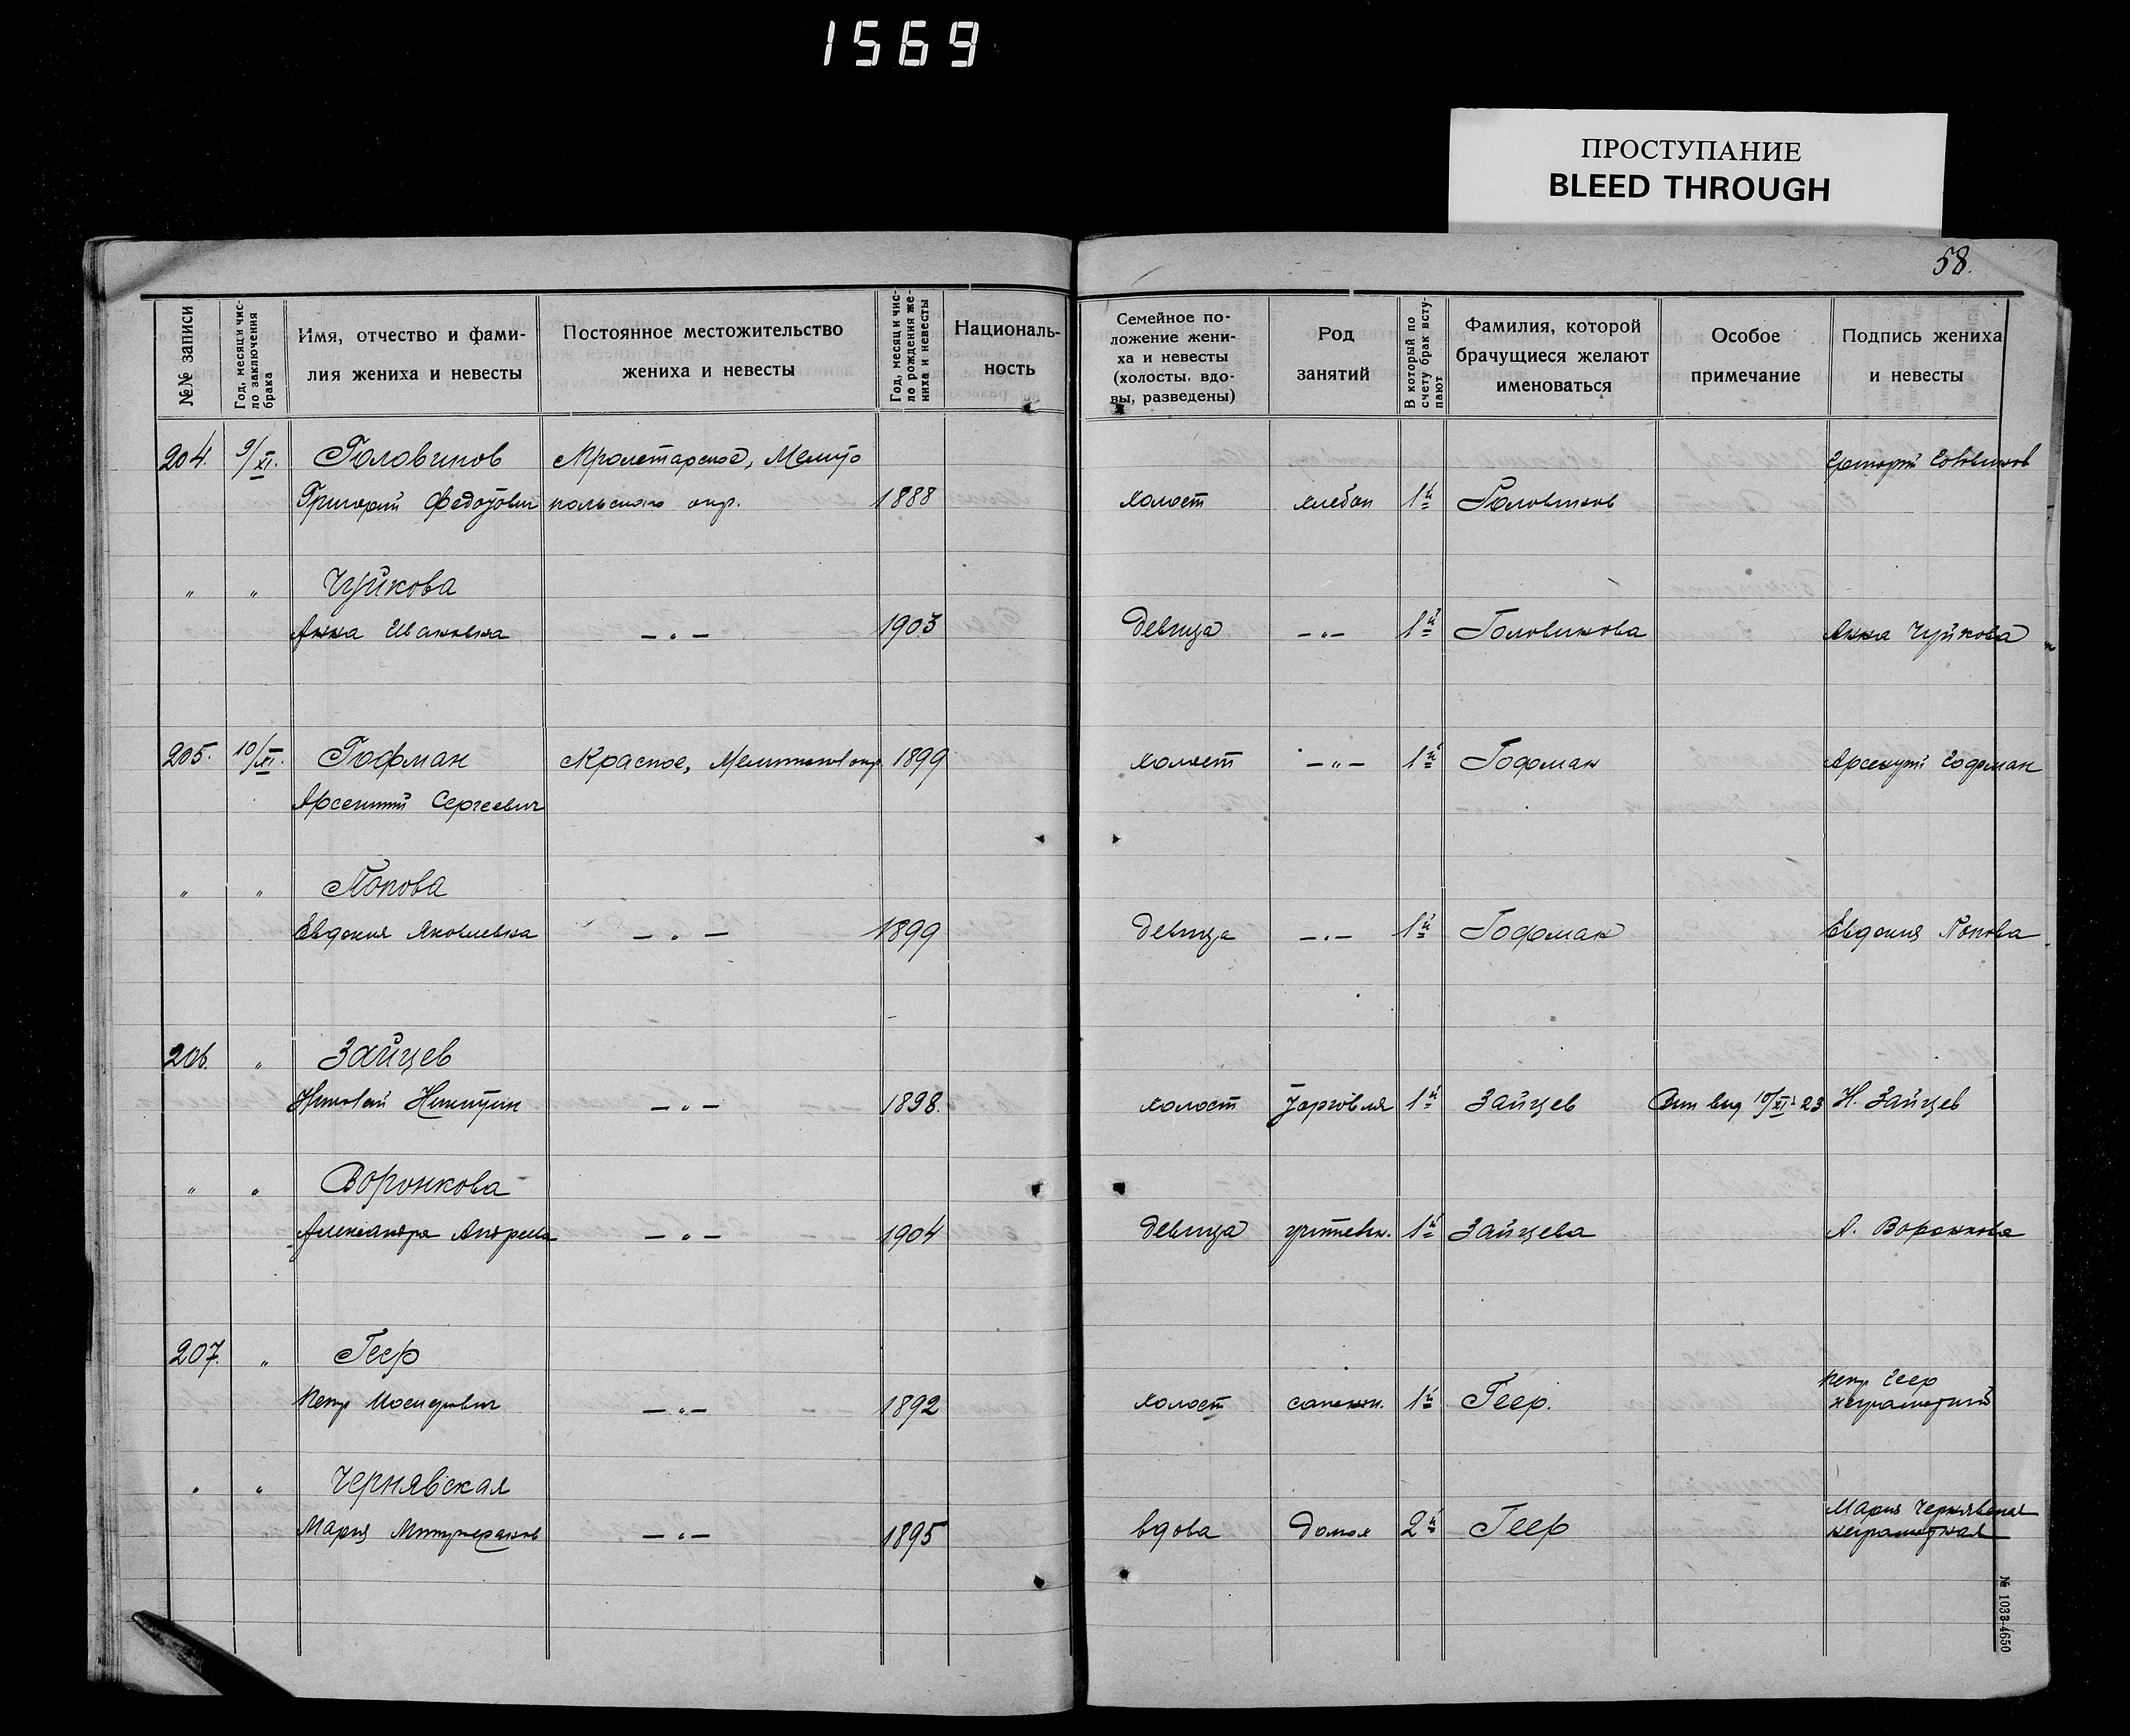 1569
ПРОСТУПАНИЕ
BLEED THROUGH
58.
№№ записи
Год, месяц и чис-
ло заключения
брака
Имя, отчество и фами-
лия жениха и невесты
Постоянное местожительство
жениха и невесты
Год, месяц и чис-
ло рождения же-
ниха и невесты
Националь-
ность
Семейное по-
ложение жени-
ха и невесты
(холосты, вдо-
вы, разведены)
Род
занятий
В который по
счету брак всту-
пают
Фамилия, которой
брачущиеся желают
именоваться
Особое
примечание
Подпись жениха
и невесты
204. 9/XI. Головинов Пролетарское, Мелито
Григорий Головинов
Григорий Федотович польского окр. 1888 холост хлебоп 1й Головинов
" " Чуйкова
Анна Ивановна — " — 1903 девица — " — 1й Головинова Анна Чуйкова
205. 10/XI. Гофман Красное, окр. 1899 холост — " — 1й Гофман Арсентий Гофман
Арсентий Сергеевич
" " Попова
Евдокия Яковлевна — " — 1899 девица — " — 1й Гофман Евдокия Попова
206. " Зайцев
Николай — " — 1898. холост торговля 1й Зайцев вид 10/XI 23 Н. Зайцев
" " Воронкова
Александра — " — 1904 девица 1й Зайцева А. Воронкова
207. " Геер
Петр Геер
Петр — " — 1892 холост сапожн. 1й Геер. неграмотный
" " Чернявская
Мария Чернявская
Мария — " — 1895 вдова домох 2й Геер неграмотная
№ 1033-4650